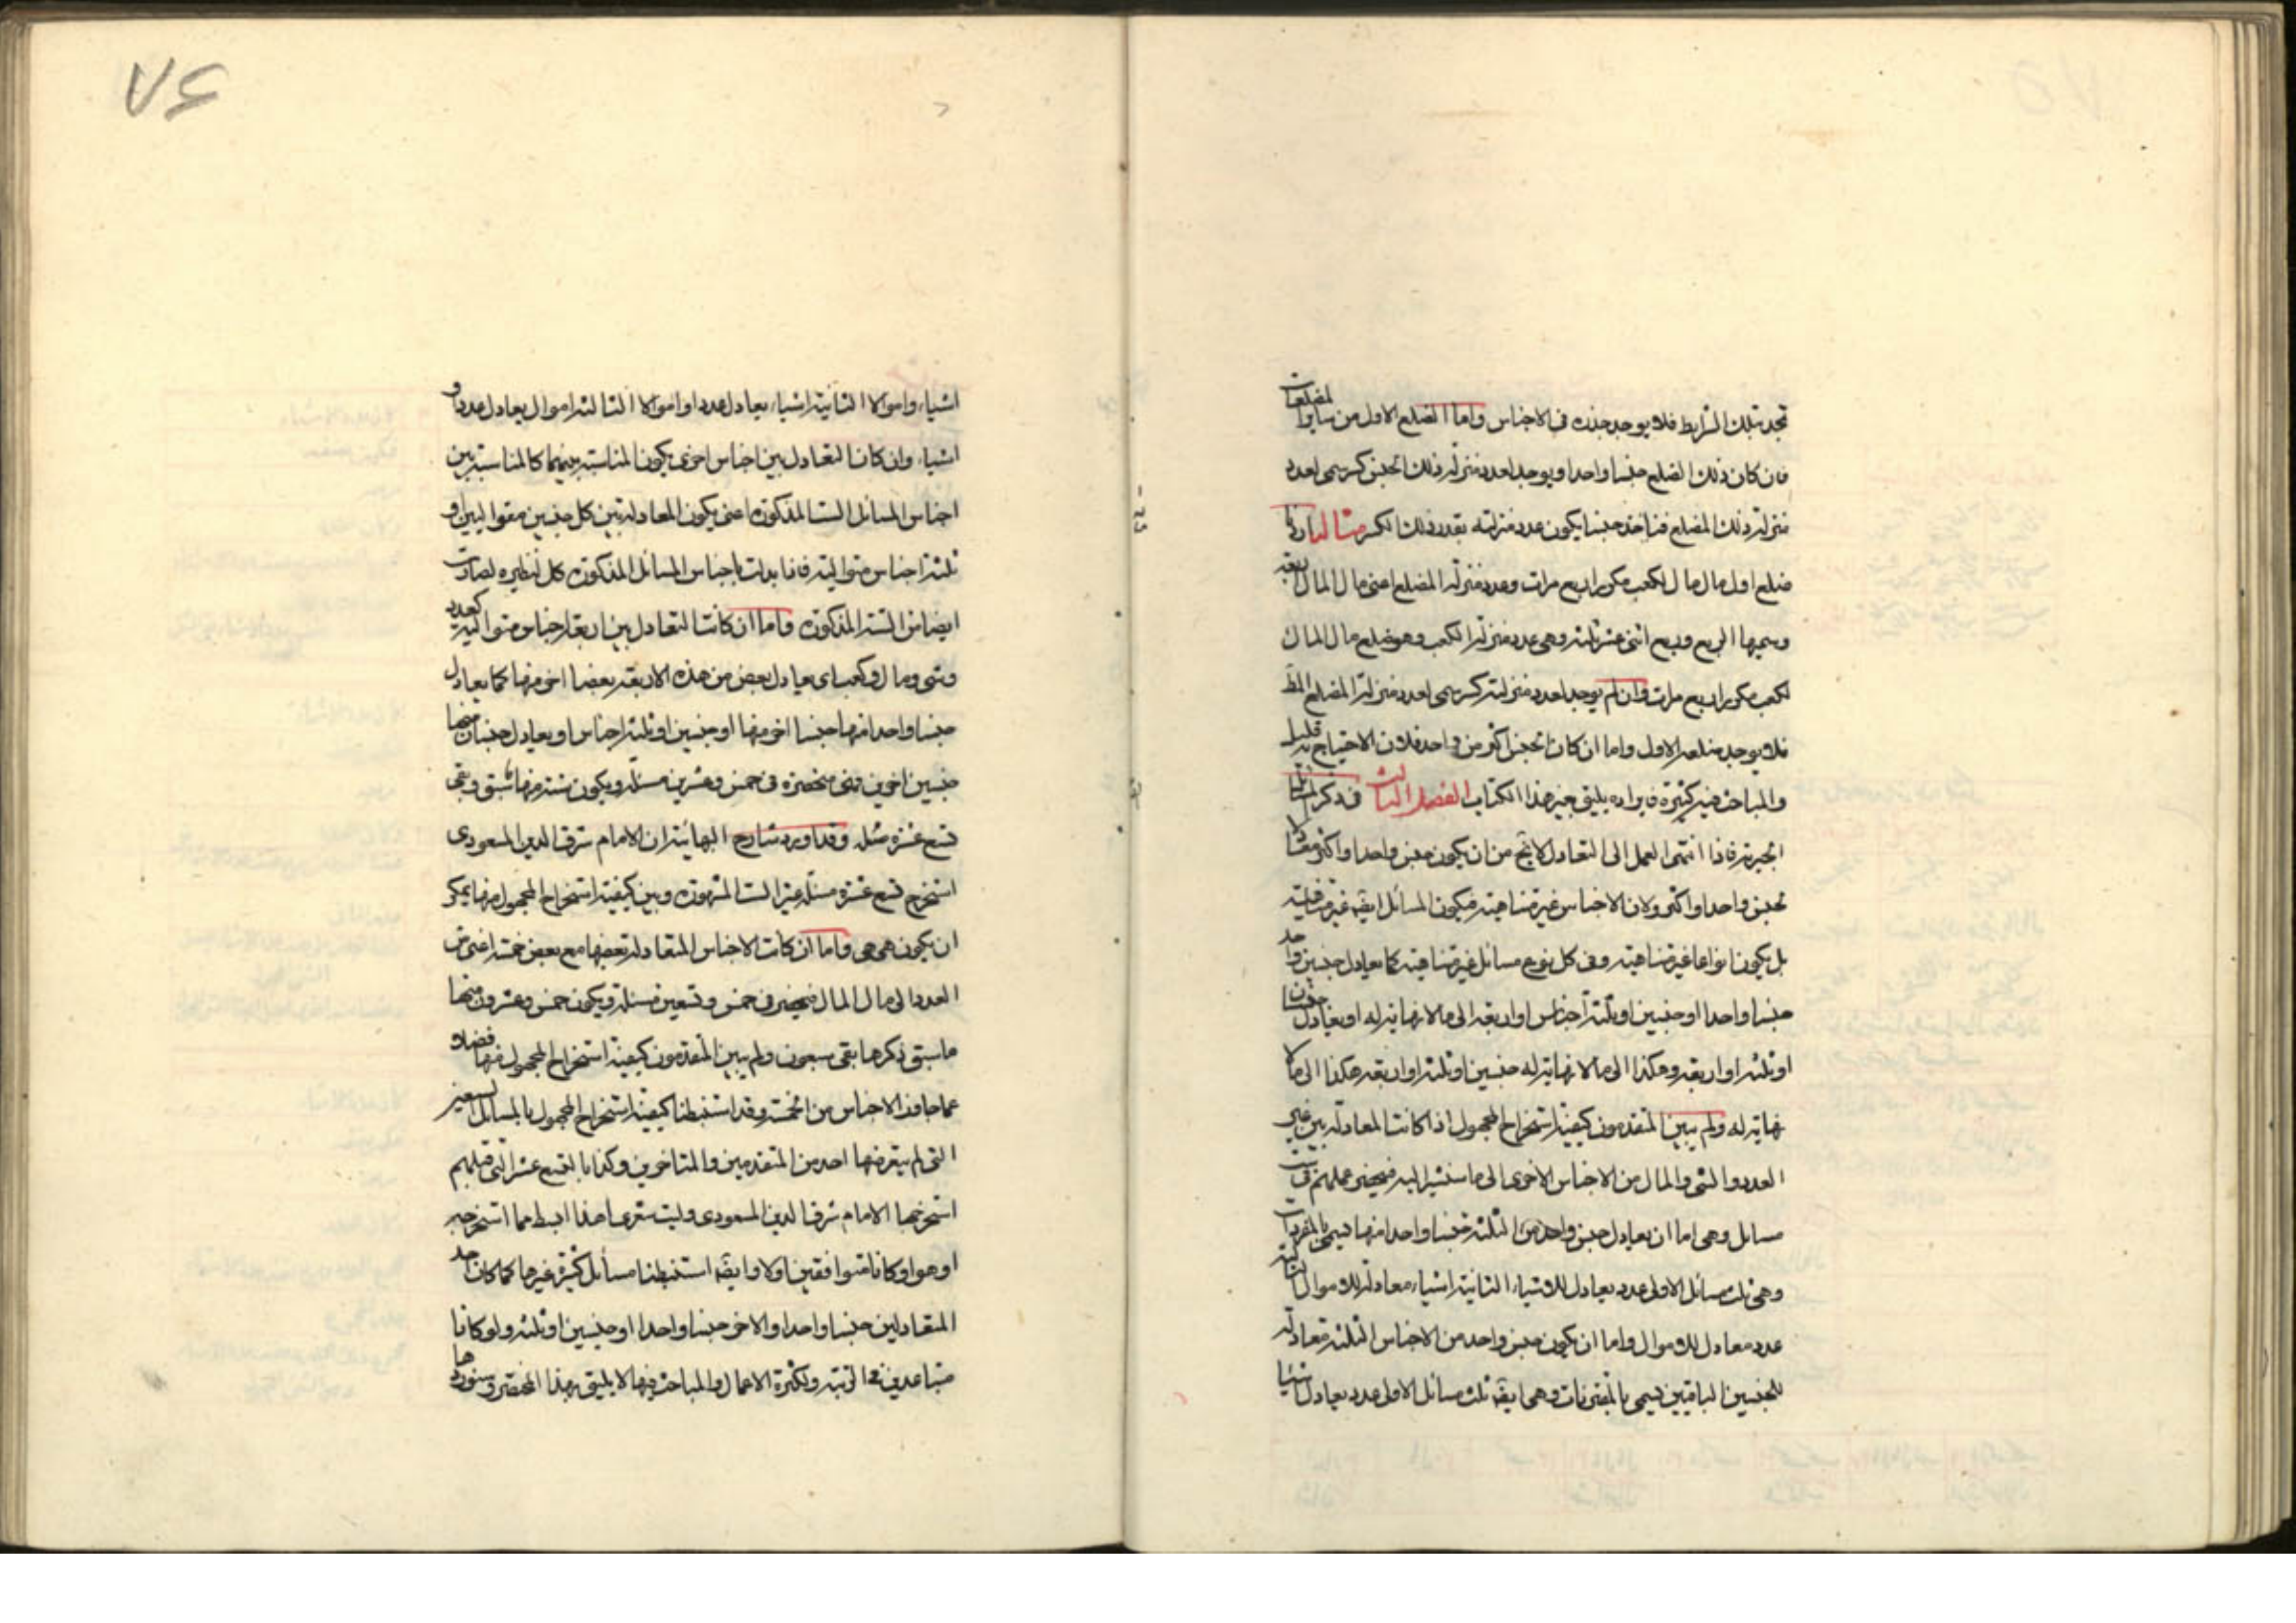 تجد بتلك الشرايط فلا يوجد جذره في الاجناس واما الضلع الاول من ساير المضلعات
فان كان ذلك الضلع جنسا واحدا ويوجد لعدد منزلة ذلك الجنس كسر سمى لعدد
منزلة ذلك المضلع فناخذ جنسا يكون عدد منزلته بقدر ذلك الكسر مثاله اردنا
ضلع اول مال مال لكعب مكور اربع مرات وعدد منزلة المضلع اعنى مال المال اربعة
وسميها الربع وربع اثنى عشر ثلثة وهى عدد منزلة الكعب وهو ضلع مال المال
لكعب مكور اربع مرات وان لم يوجد لعدد منزلته كسر سمى لعدد منزلة المضلع المط
فلا يوجد ضلعه الاول واما ان كان الجنس اكثر من واحد فلان الاحتياج به قليل
والمباحث فيه كثيرة فايراده يليق بغير هذا الكتاب الفصل الثالث في ذكر المسائل
الجبرية فاذا انتهى العمل الى التعادل لا يخ من ان يكون جنس واحد او اكثر معادلا
لجنس واحد او اكثر ولان الاجناس غير متناهية فيكون المسائل ايضه غير متناهية
بل يكون انواعا غير متناهية وفي كل نوع مسائل غير متناهية كما يعادل جنس واحد
جنسا واحدا او جنسين او ثلثة اجناس او اربعة الى ما لا نهاية له او يعادل جنسان
او ثلثة او اربعة وهكذا الى ما لا نهاية له جنسين او ثلثة او اربعة هكذا الى ما لا
نهاية له ولم يبين المتقدمون كيفية استخراج المجهول اذا كانت المعادلة بين غير
العدد والشى والمال من الاجناس الاخرى الى ما سنشير اليه فيحضر عملهم في ست
مسايل وهى اما ان يعادل جنس واحد من الثلثة جنسا واحدا منها ويسمى بالمفردات
وهى ثلث مسائل الاولى عدد يعادل للاشياء الثانية اشياء معادلة للاموال الثالثة
عدد معادل للاموال واما ان يكون جنس واحد من الاجناس الثلثة معادلة
للجنسين الباقيين ويسمى بالمقترنات وهى ايضه ثلث مسائل الاولى عدد يعادل شيئا
٧٤
اشياء واموالا الثانية اشياء يعادل عددا واموالا الثالثة اموال يعادل عددا و
اشياء وان كان التعادل بين اجناس اخرى يكون المناسبة بينهما كالمناسبة بين
اجناس المسائل الست المذكورة اعنى يكون المعادلة بين كل جنسين متواليين او
ثلثة اجناس متوالية فاذا بدلت باجناس المسائل المذكورة كل نظيره لصارت
ايضا من الستة المذكورة واما ان كانت التعادل بين اربعة اجناس متوالية كعدد
وشى ومال وكعب اى يعادل بعض من هذه الاربعة بعضا اخر منها كما يعادل
جنسا واحدا منها جنسا اخر منها او جنسين او ثلثة اجناس او يعادل جنسان منها
جنسين اخرين فهى منحصرة في خمس وعشرين مسئلة ويكون ستة منها ما سبق وبقى
تسع عشرة مسئلة وقد اورد شارح البهائية ان الامام شرف الدين المسعودى
استخرج تسع عشرة مسئلة غير الست المشهورة وبين كيفية استخراج المجهول منها يمكن
ان يكون هى هى واما ان كانت الاجناس المتعادلة بعضها مع بعض خمسة اعنى من
العدد الى مال المال فيحضر في خمس وتسعين مسئلة ويكون خمس وعشرون منها
ما سبق ذكرها بقى سبعون ولم يبين المتقدمون كيفية استخراج المجهول فيها فضلا
عما جاوز الاجناس من الخمسة وقد استنبطنا كيفية استخراج المجهول بالمسائل السبعين
التى لم يتعرضها احد من المتقدمين والمتاخرين وكذا بالتسع عشر التى قبلهم
استخرجها الامام شرف الدين المسعودى وليت شعرى اهذا ابسط مما استخرجه
او هو او كانا متوافقين اولا وايضه استنبطنا مسائل كثيرة غيرها كما كان احد
المتعادلين جنسا واحدا والاخر جنسا واحدا او جنسين او ثلثة ولو كانا
متباعدين في الرتبة ولكثرة الاعمال والمباحث فيها لا يليق بهذا المختصر وسنوردها